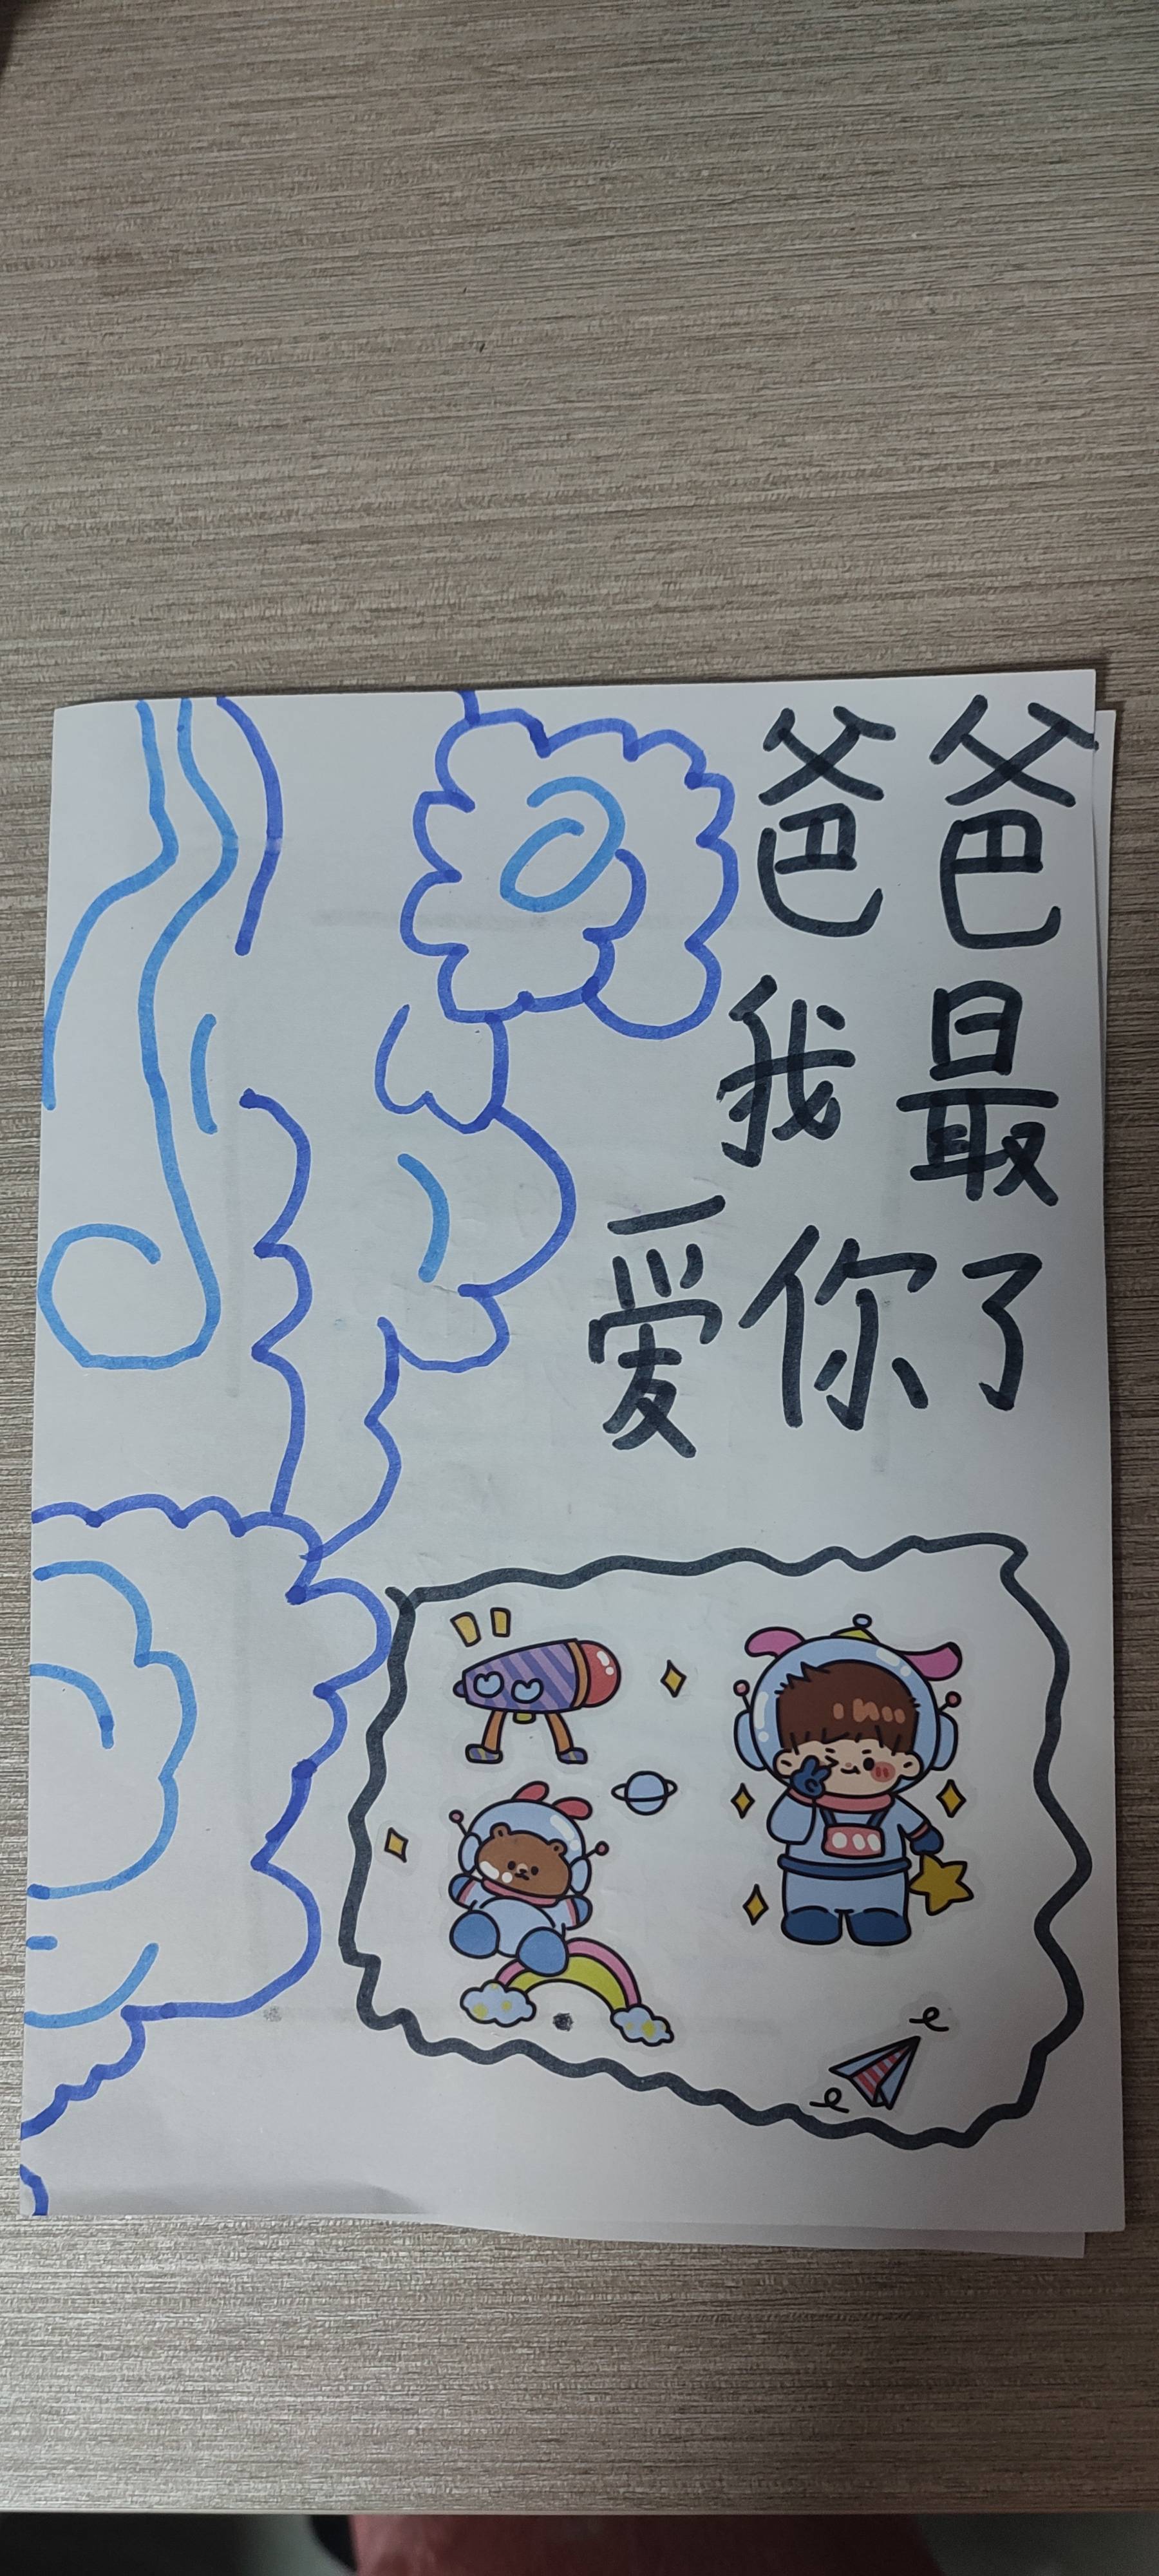 爸爸
我最
爱你了